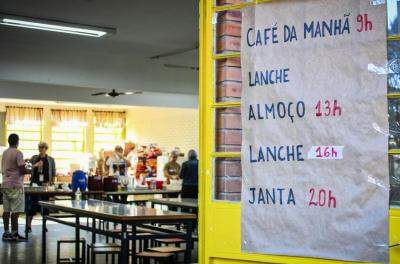 CAFÉ DA MANHÃ 9h
LANCHE
ALMOÇO 13h
LANCHE 16h
JANTA 20h